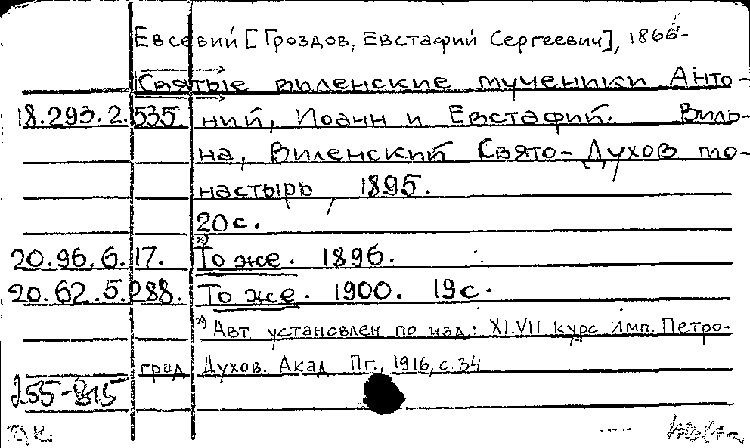 Евсевий [Гроздов, Евстафий Сергеевич], 1866-
Святые виленские мученики Анто-
18.293.2.535 ний, Иоанн и Евстафий. Виль-
на, Виленский Свято-Духов мо-
настырь, 1895.
20с.
x)
20.96.6.17. То же. 1896.
20.62.5.288. То же. 1900. 19с.
x) Авт. установлен по изд.: XLVII курс Имп. Петро-
град. Духов. Акад. Пг., 1916, с. 34
255-815